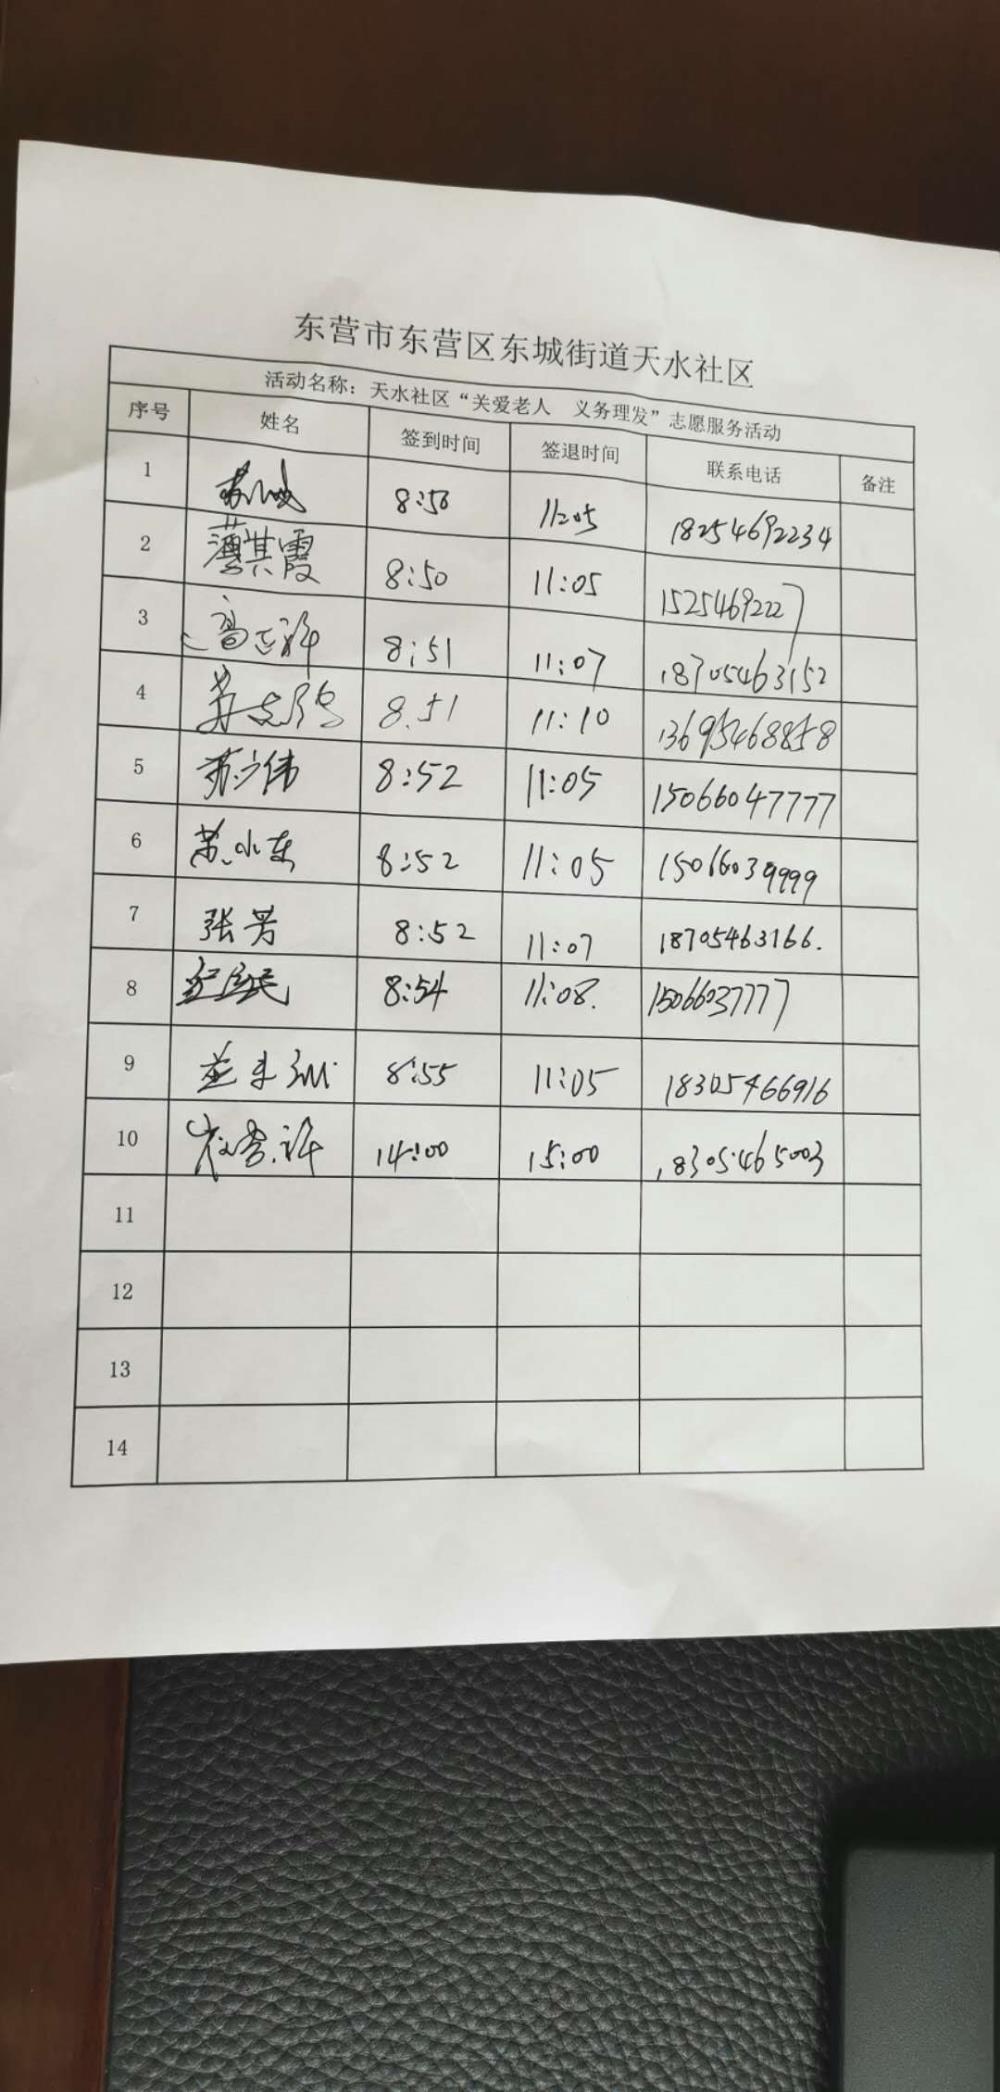 东营市东营区东城街道天水社区
活动名称：天水社区“关爱老人 义务理发”志愿服务活动
序号 姓名 签到时间 签退时间 联系电话 备注
1 8:50 11:05 18254692234
2 薄其霞 8:50 11:05 15254692227
3 8:51 11:07 18705463152
4 8:51 11:10 13695468858
5 苏广伟 8:52 11:05 15066047777
6 苏小东 8:52 11:05 15066039999
7 张芳 8:52 11:07 18705463166.
8 8:54 11:08. 15066037777
9 8:55 11:05 18305466916
10 14:00 15:00 18305465003
11
12
13
14